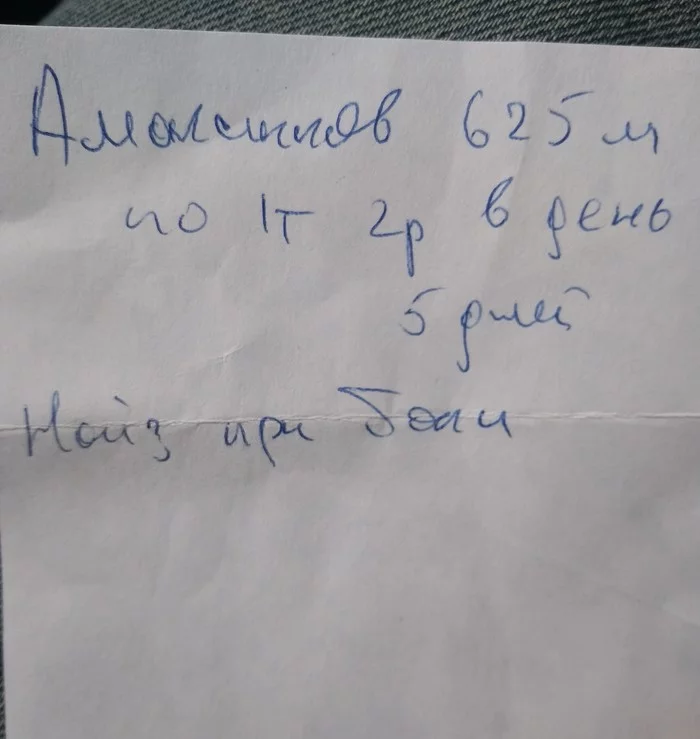 Амоксиклав 625 м
по 1т 2р в день
5 дней
Найз при боли